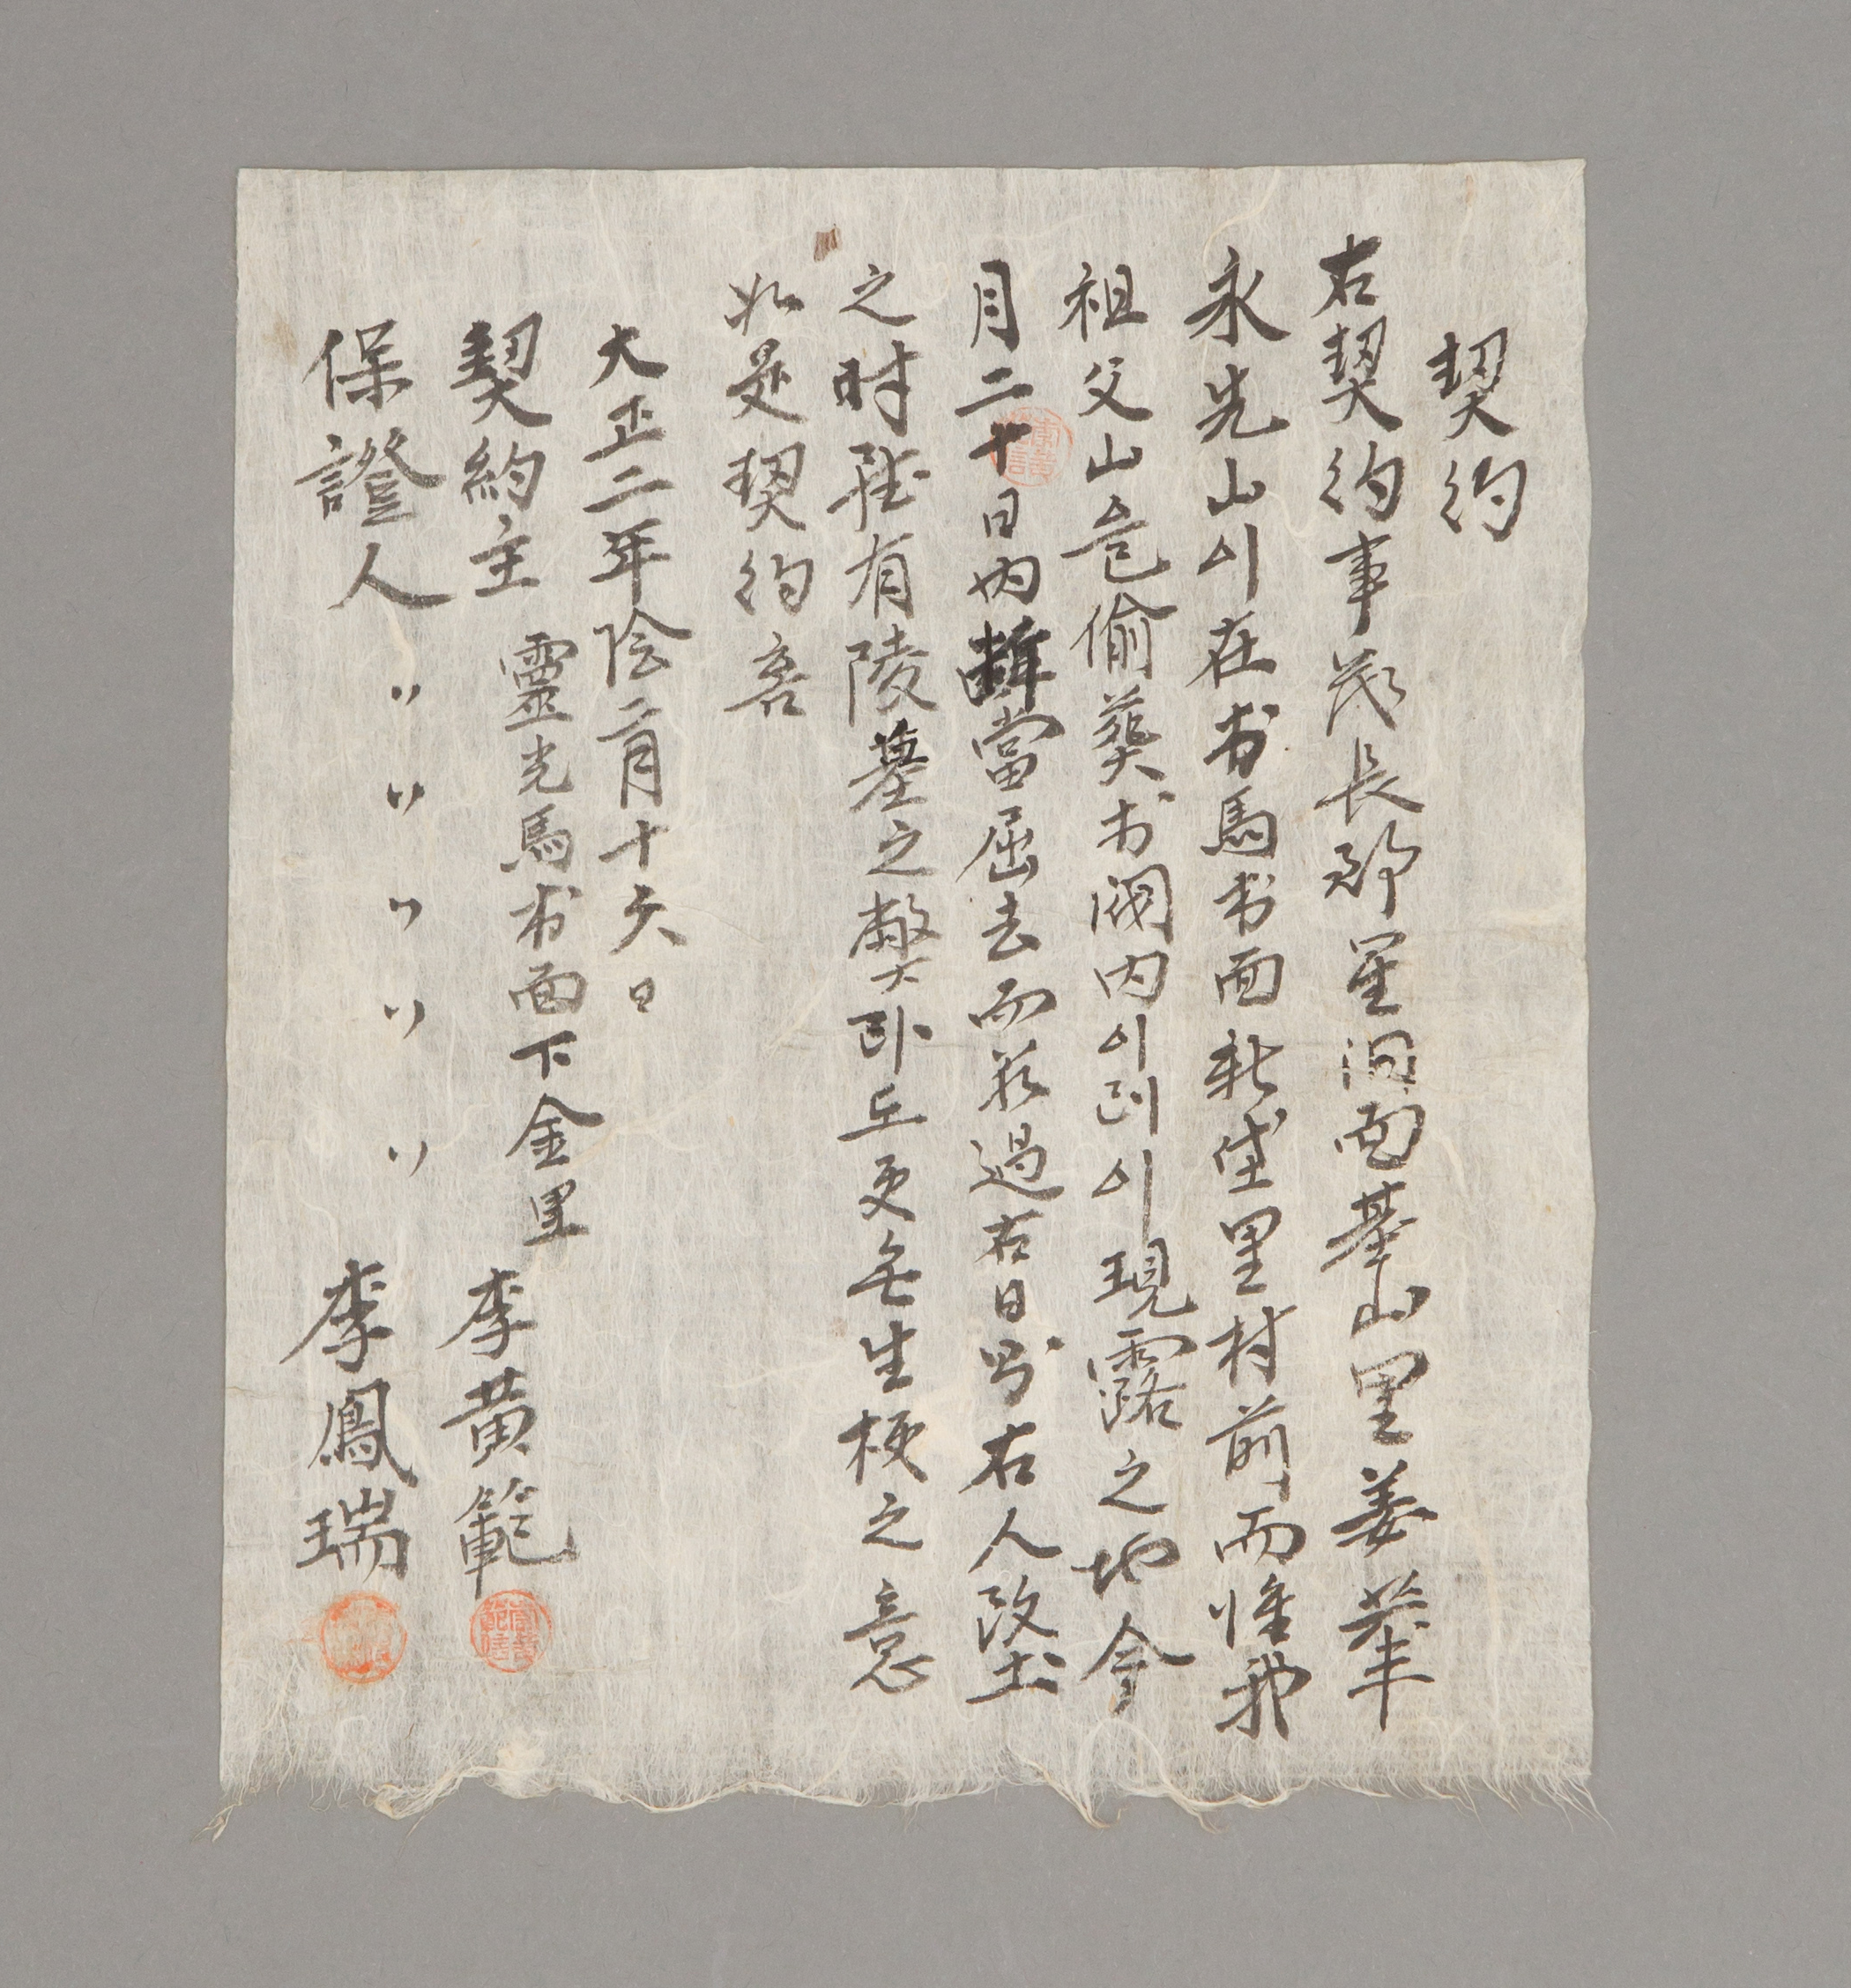 契約
右契約事茂長郡星洞面基山里姜華
永先山이在書馬書面新垈里村前而惟我
祖父山을偷葬于閥内이러니現露之地今
月二十日內當屈去而若過右日字右人改堂
之時雖有陵墓之弊라도更無生梗之意
如是契約홈
大正二年陰二月十六日
契約主 靈光馬村面下金里 李黄範
保證人 〃〃〃〃〃 李鳳瑞